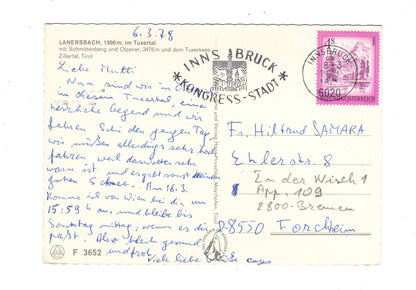 6.3.78
LANERSBACH, 1300 m, im Tuxertal
mit Schmittenberg und Olperer, 3476 m und dem Tuxerkees
Zillertal, Tirol
Liebe Mutti
Nun sind wir in
in diesem Tuxertal, eine
herrliche Gegend und wir
fahren Ski den ganzen Tag
wir müssen allerdings sehr hoch
fahren weil darunter sehr
warm ist und es gibt
guten Schnee. Am 16.3.
komme ich von Wien bei dir um
15:59 an, und bleibe bis
Sonntag mittag, wenn es dir
paßt. Also bleib gesund
und froh,
viele liebe Grüße
F 3652
INNSBRUCK
KONGRESS-STADT
INNSBRUCK
6020
S
ÖSTERREICH
Fr. Hiltrud SAMARA
Ehlerstr. 8
In der Wisch 1
App. 109
2800-Bremen
D-8550
Forchheim